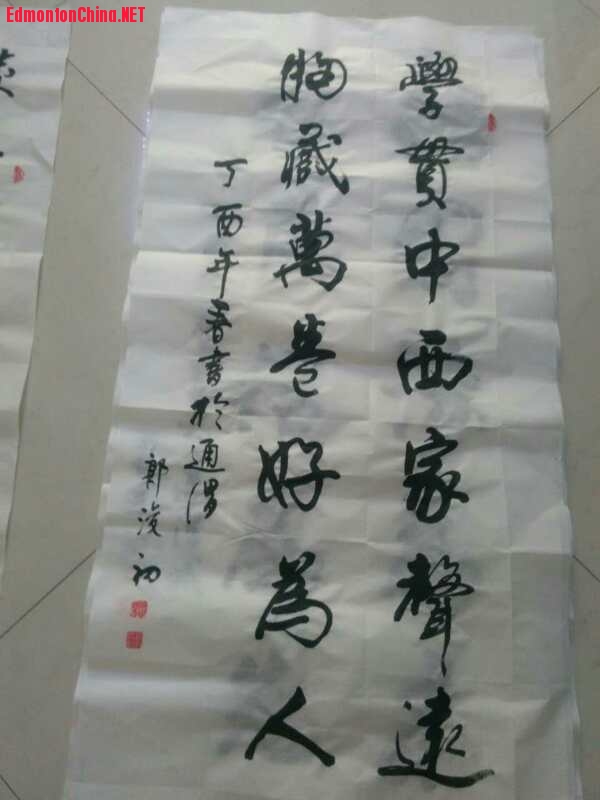 EdmontonChina.NET
學貫中西家聲遠
胸藏萬卷好為人
丁酉年春書於通渭
郭浚初